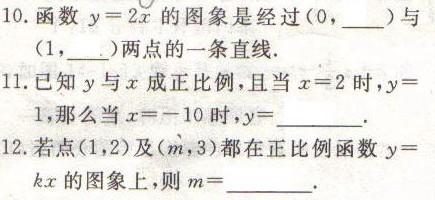 10. 函数 y=2x 的图象是经过(0,____)与
(1,____)两点的一条直线.
11. 已知 y 与 x 成正比例,且当 x=2 时,y=
1,那么当 x=-10 时,y=________.
12. 若点(1,2)及(m,3)都在正比例函数 y=
kx 的图象上,则 m=________.